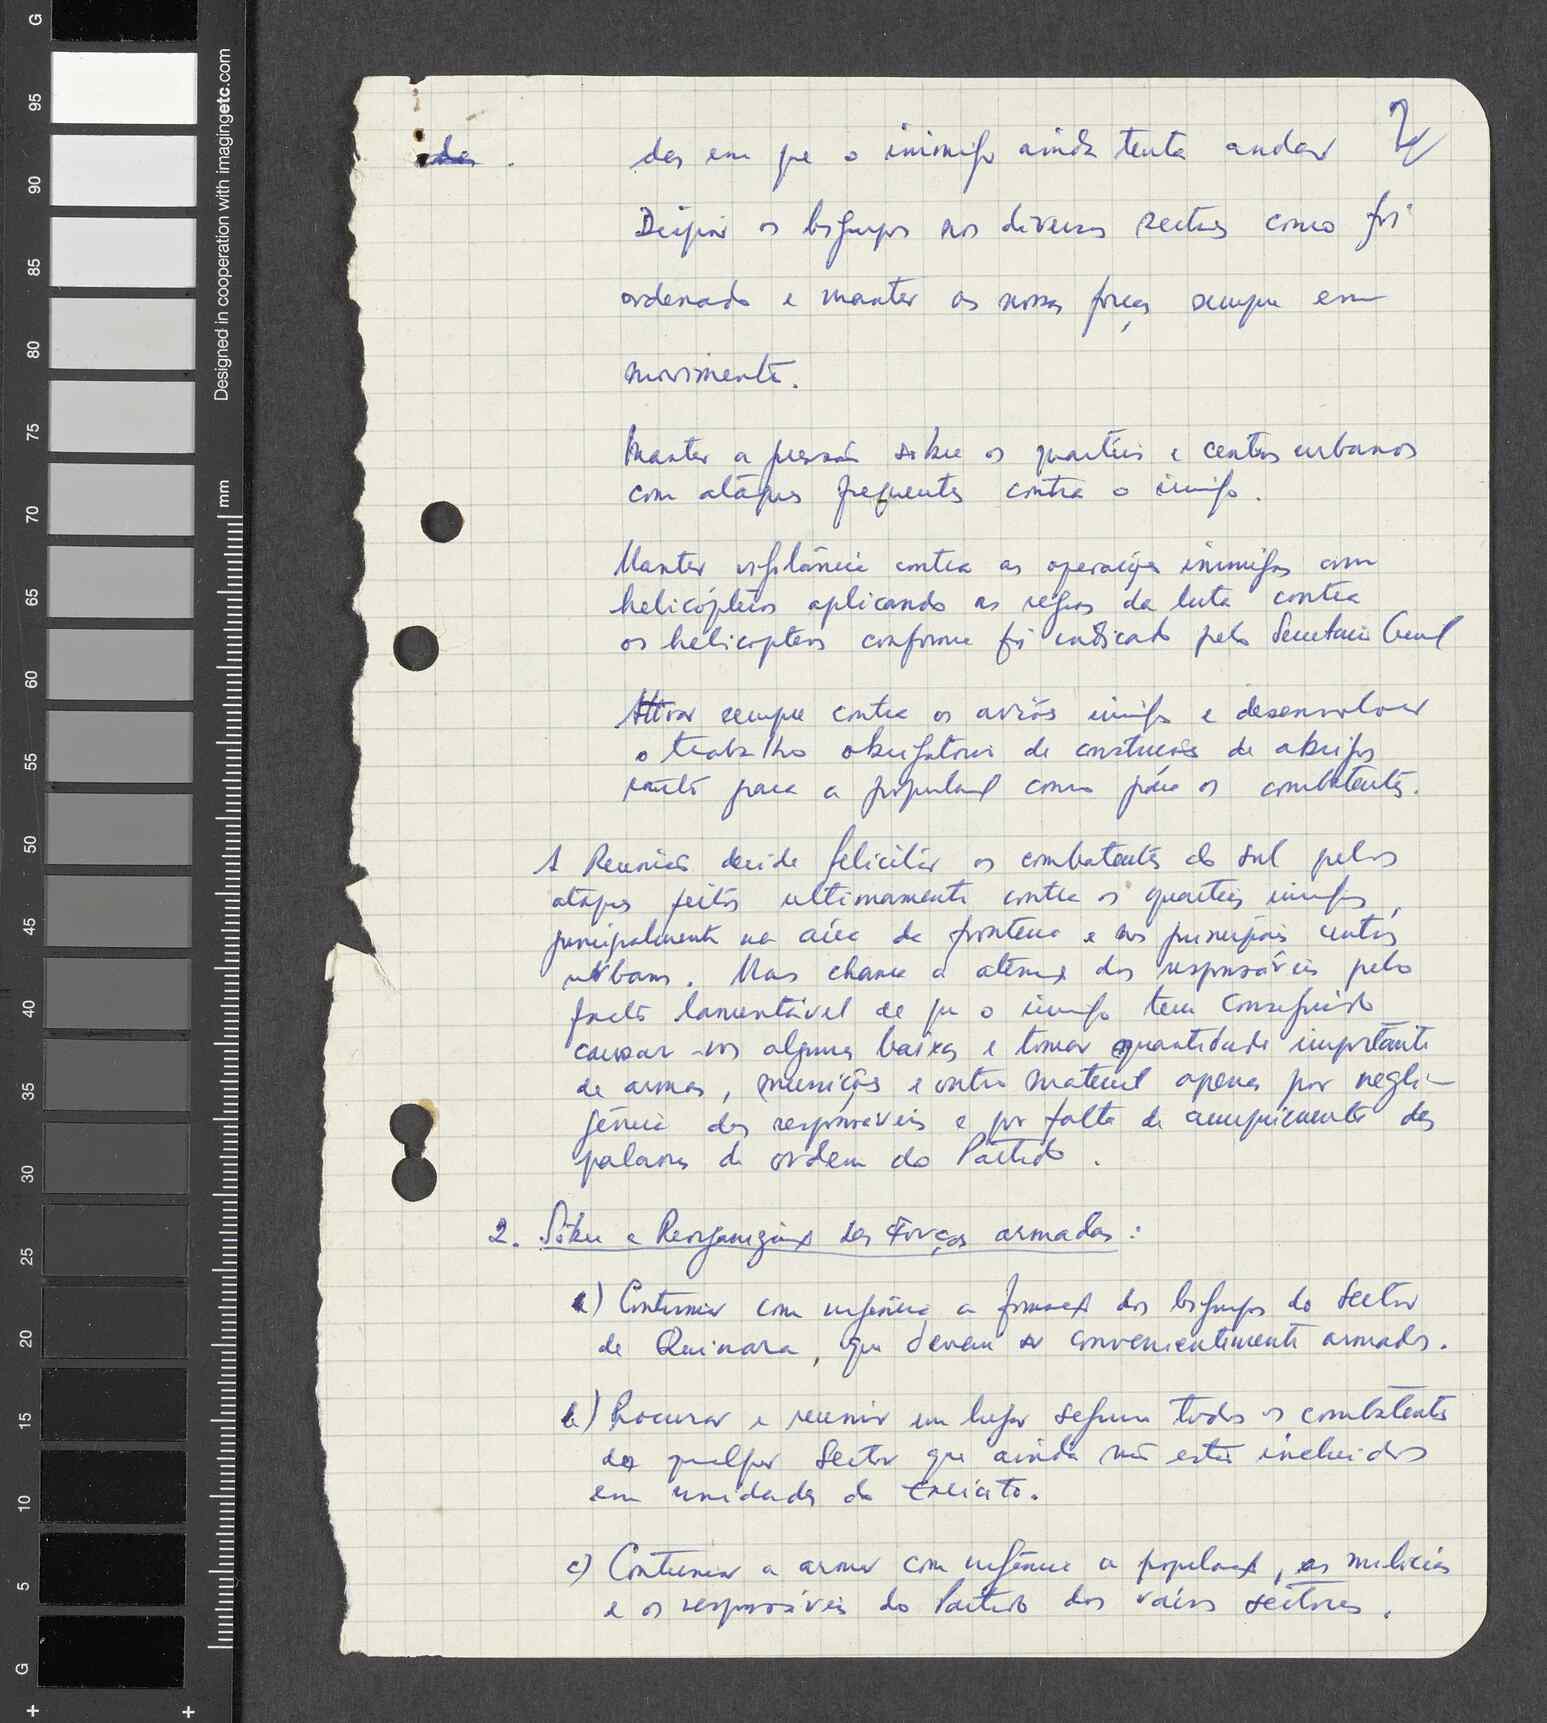 2
das em que o inimigo ainda tenta andar
Dirigir os bigrupos nos diversos sectores como foi
ordenado e manter as nossas forças sempre em
movimento.
Manter a pressão sobre os quartéis e centros urbanos
com ataques frequentes contra o inimigo.
Manter vigilância contra as operações inimigas com
helicópteros aplicando as regras da luta contra
os helicopteros conforme foi indicado pelo Secretario Geral
Atirar sempre contra os aviões inimigos e desenvolver
o trabalho obrigatorio de construção de abrigos
tanto para a população como para os combatentes.
A Reunião decide felicitar os combatentes do sul pelos
ataques feitos ultimamente contra os quarteis inimigos,
principalmente na área da fronteira e nos principais centros
urbanos. Mas chama a atenção dos responsáveis pelo
facto lamentável de que o inimigo tem conseguido
causar-nos algumas baixas e tomar quantidade importante
de armas, munições e outro material apenas por negli-
gência dos responsáveis e por falta de cumprimento das
palavras de ordem do Partido.
2. Sôbre a Reorganização das Forças armadas:
a) Continuar com urgência a formação dos bigrupos do Sector
de Quinara, que devem ser convenientemente armados.
b) Procurar e reunir em lugar seguro todos os combatentes
de qualquer Sector que ainda não estão incluidos
em unidades do Exército.
c) Continuar a armar com urgência a população, as milicias
e os responsáveis do Partido dos vários sectores.
Designed in cooperation with imagingetc.com
mm
G
95
90
85
80
75
70
65
60
55
50
45
40
35
30
25
20
15
10
5
G